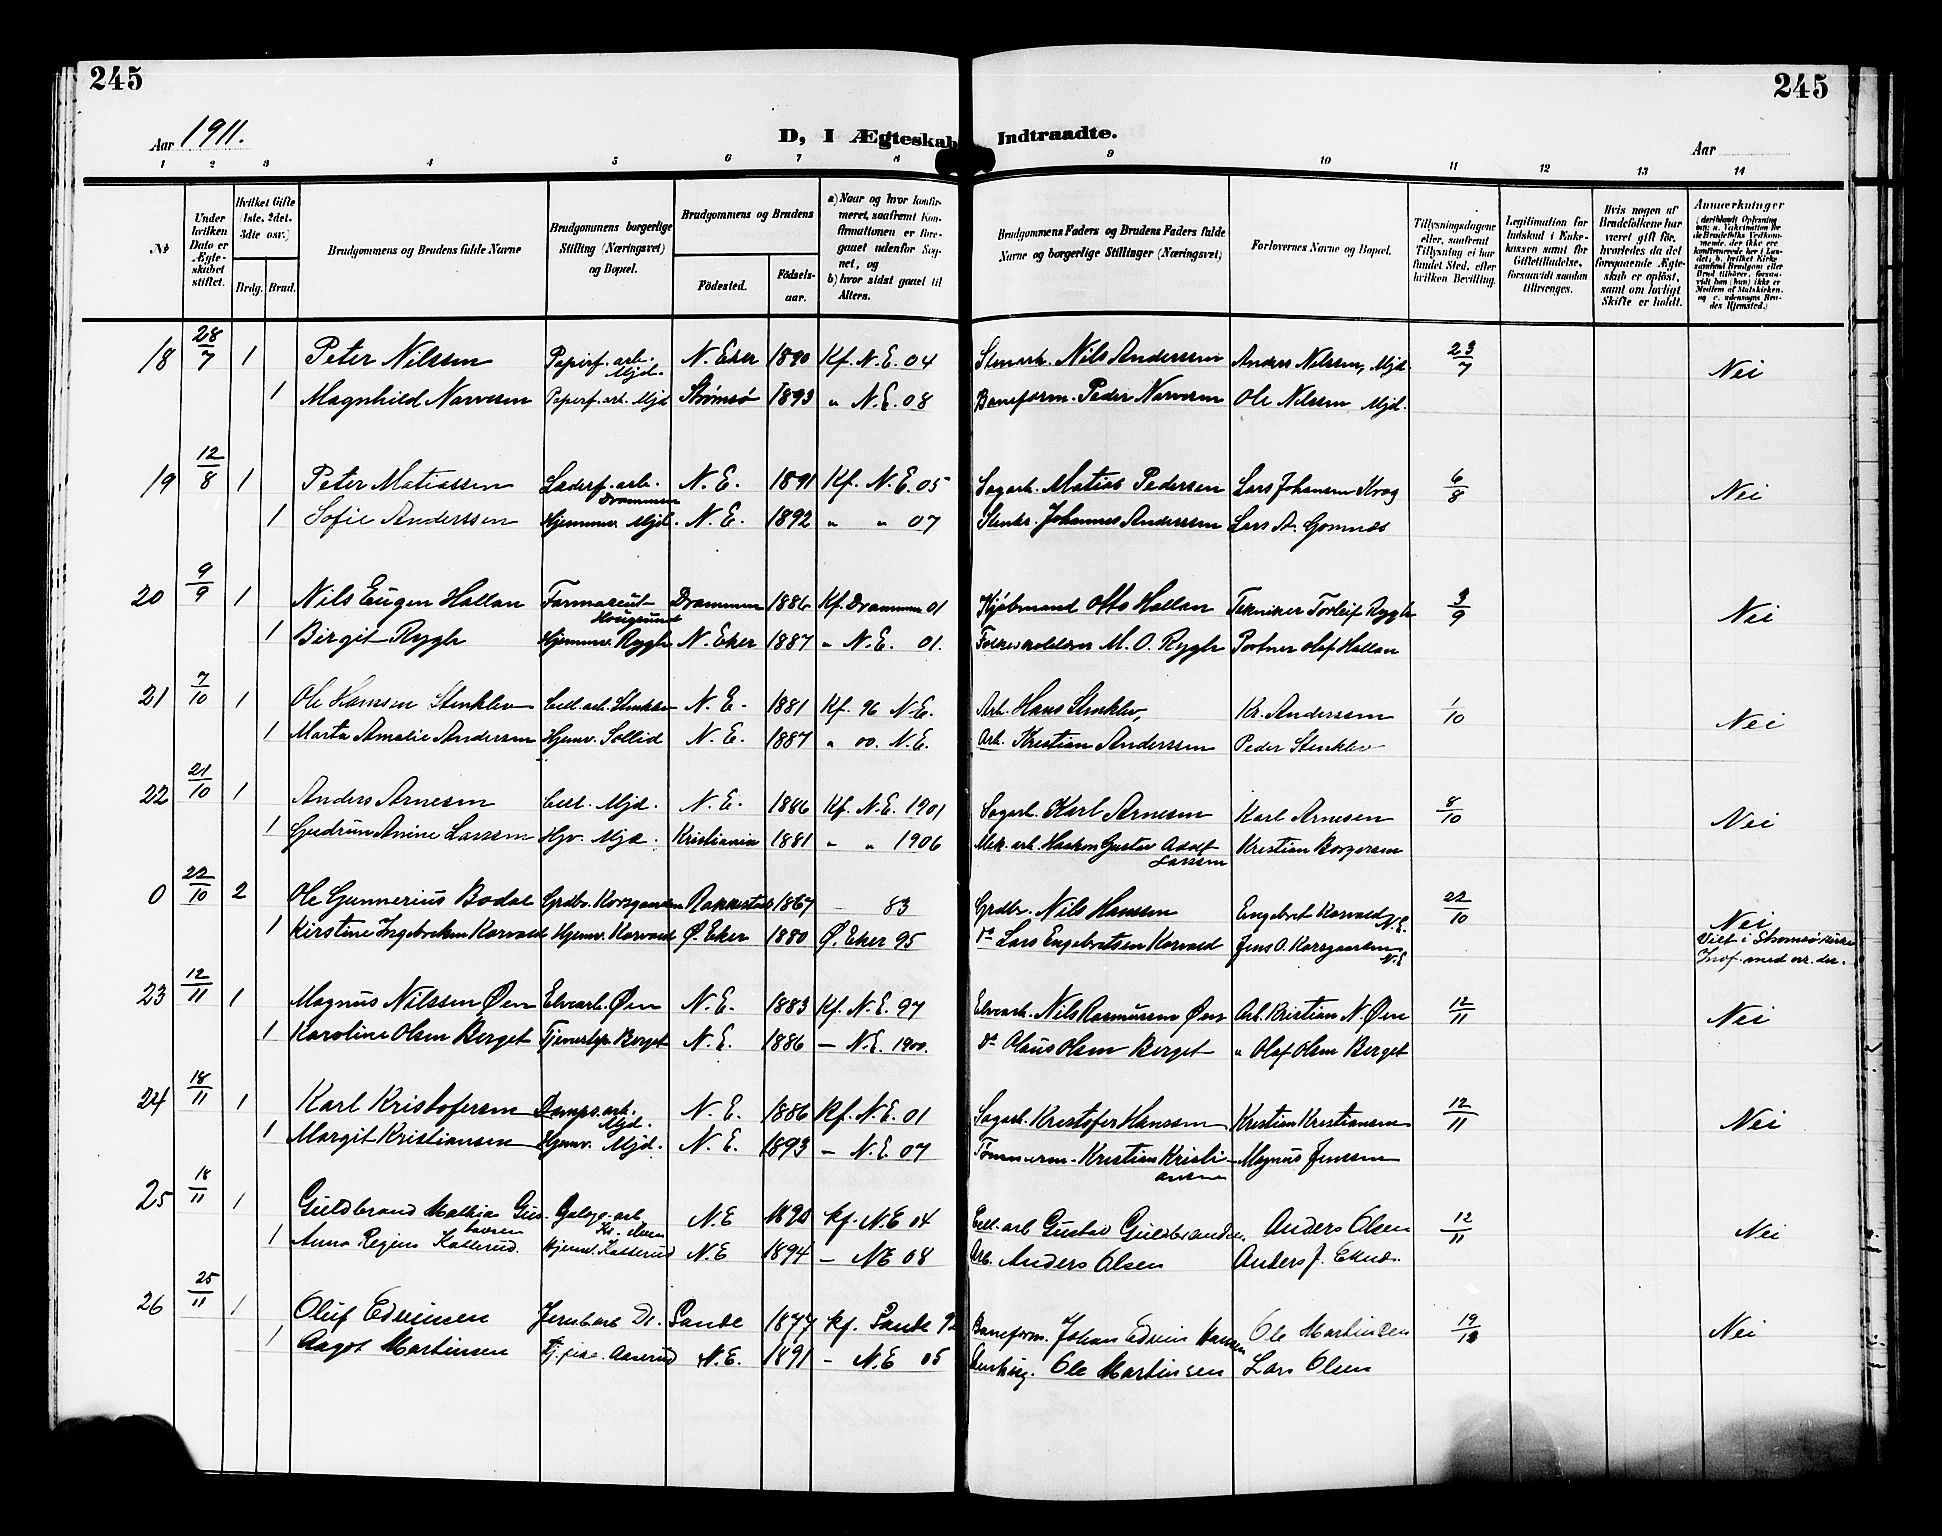 245
245
Aar 1911.
D, I Ægteskab Indtraadte.
Aar
1 2 3 4 5 6 7 8 9 10 11 12 13 14
No
Under hvilken Dato er Ægteskabet stiftet.
Hvilket Gifte (1ste, 2det, 3die osv.)
Brdg. Brud.
Brudgommens og Brudens fulde Navne
Brudgommens borgerlige Stilling (Næringsvei) og Bopæl.
Brudgommens og Brudens
Födested.
Födselsaar.
a) Naar og hvor konfirmeret, saafremt Konfirmationen er foregaaet udenfor Sognet, og
b) hvor sidst gaaet til Alters.
Brudgommens Faders og Brudens Faders fulde Navne og borgerlige Stillinger (Næringsvei)
Forlovernes Navne og Bopæl.
Tillysningsdagene eller, saafremt Tillysning ei har fundet Sted, efter hvilken Bevilling.
Legitimation for Indskud i Enkekassen samt for Giftetilladelse, forsaavidt saadan tiltrænges.
Hvis nogen af Brudefolkene har været gift för, hvorledes da det foregaaende Ægteskab er oplöst, samt om lovligt Skifte er holdt.
Anmærkninger
18 28/7 1 Peter Nilssen Papirf. arb. Mjd. N. Eker 1890 Kf. N. E. 04 Stenarb. Nils Anderssen Anders Nilssen, Mjd. 23/7 Nei
1 Magnhild Narvesen Papirf. arb. Mjd Strømsø 1893 " N. E. 08 Baneform. Peder Narvesen Ole Nilssen Mjd.
19 12/8 1 Peter Matiassen Læderf. arb. Drammen N. E. 1891 Kf. N. E. 05 Sagarb. Matias Pedersen Lars Johansen Krog 6/8 Nei
1 Sofie Anderssen Hjemmev. Mjd. N. E. 1892 " " 07 Johannes Anderssen Lars A. Gomnæs
20 9/9 1 Nils Eugen Hallan Farmaceut Drammen 1886 Kf. Drammen 01 Kjøbmand Otto Hallan Tekniker Torleif Rygh 3/9 Nei
1 Birgit Rygh Hjemmev. Rygh N. Eker 1887 " N. E. 01. M. O. Rygh Portner Olaf Hallan
21 7/10 1 Ole Hanssen Stenklev Cell. arb. Stenklev N. E. 1881 Kf. 96 N. E. Arb. Hans Stenklev, Kr. Anderssen 1/10 Nei
1 Marta Amalie Anderssen Hjemv. Sollid N. E. 1887 " 00. N. E. Arb. Kristian Anderssen Peder Stenklev
22 21/10 1 Anders Arnesen Cell. Mjd. N. E. 1886 Kf. N. E. 1901 Sagarb. Karl Arnesen Karl Arnesen 8/10 Nei
1 Gudrun Anine Larssen Hjv. Mjd. Kristiania 1881 " " 1906 Mek. arb. Haakon Gustav Adolf Larssen Kristian Borgersen
0 22/10 2 Ole Gunnerius Bodal Grdbr. Korsgaarden Rakkestad 1867 - 83 Grdbr. Nils Hanssen Engebret Korvald N. E. 22/10 Nei
1 Kirstine Ingebretsen Korvald Hjemv. Korvald Ø. Eker 1880 Ø. Eker 95 do Lars Engebretsen Korvald Jens O. Korsgaarden N. E. Viet i Strømsø kirke
23 12/11 1 Magnus Nilssen Øen Elvearb. Øen N. E. 1883 Kf. N. E. 97 Elvearb. Nils Rasmussen Øen Arb. Kristian N. Øen 12/11 Nei
1 Karoline Olsen Berget Tjenerhv. Berget N. E. 1886 - N. E. 1900. do Olaus Olsen Berget " Olaf Olsen Berget
24 18/11 1 Karl Kristofersen Damps. arb. Mjd. N. E. 1886 Kf. N. E. 01 Sagarb. Kristofer Hanssen Kristian Kristiansen 12/11 Nei
1 Margit Kristiansen Hjemv. Mjd. N. E. 1893 - N. E. 07 Tømmerm. Kristian Kristiansen Magnus Jenssen
25 18/11 1 Guldbrand Mathias Gustavsen N. E 1890 Kf. N. E 04 Cell. arb Gustav Guldbrandsen Anders Olsen 12/11 Nei
1 Anna Regine Katterud. Hjemv. Katterud N. E 1894 - N E 08 Arb. Anders Olsen Anders J. Eknes.
26 25/11 1 Oluf Edvinsen Jernb arb Dr. Sande 1877 Kf. Sande 92 Baneform. Johan Edvin Hansen Ole Martinsen 19/11 Nei
1 Aagot Martinsen Tj. pike Aaserud N. E. 1891 - N. E 05 Ole Martinsen Lars Olsen